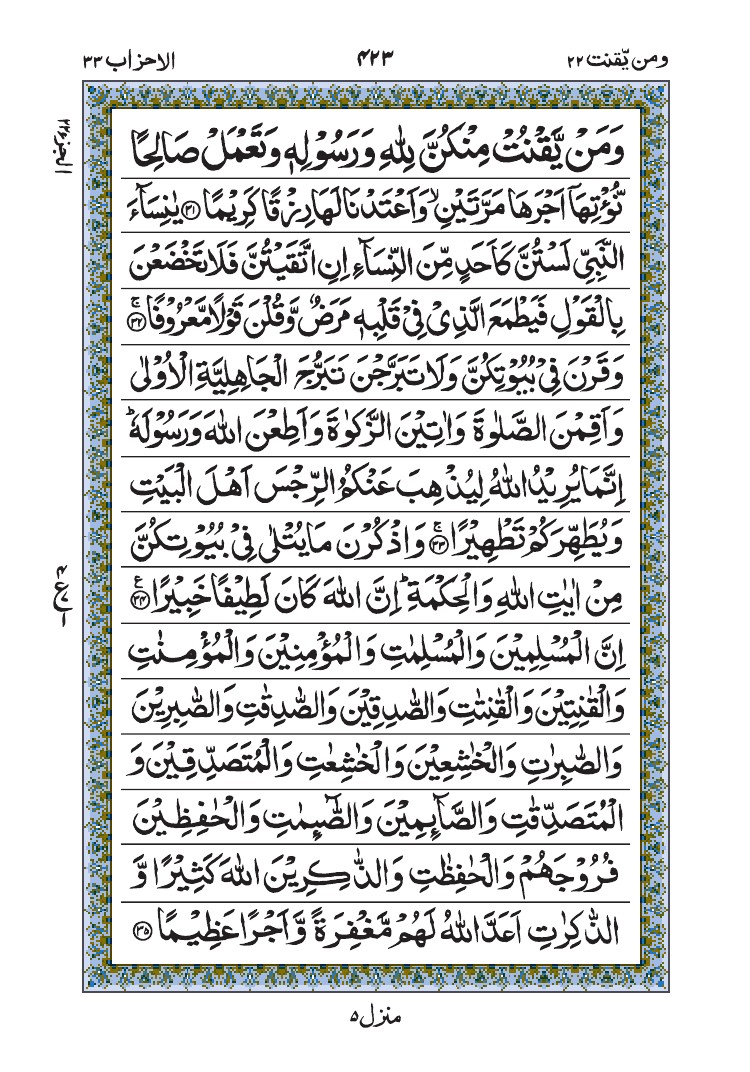 ومن يّقنت ٢٢
٤٢٣
الاحزاب ٣٣
وَمَنْ يَّقْنُتْ مِنْكُنَّ لِلّٰهِ وَرَسُوْلِهٖ وَتَعْمَلْ صَالِحًا
نُّؤْتِهَاۤ اَجْرَهَا مَرَّتَيْنِۙ وَاَعْتَدْنَا لَهَا رِزْقًا كَرِيْمًا ﴿۳۱﴾ يٰنِسَآءَ
النَّبِيِّ لَسْتُنَّ كَاَحَدٍ مِّنَ النِّسَآءِ اِنِ اتَّقَيْتُنَّ فَلَا تَخْضَعْنَ
بِالْقَوْلِ فَيَطْمَعَ الَّذِىْ فِىْ قَلْبِهٖ مَرَضٌ وَّقُلْنَ قَوْلًا مَّعْرُوْفًا ۚ﴿۳۲﴾
وَقَرْنَ فِىْ بُيُوْتِكُنَّ وَلَا تَبَرَّجْنَ تَبَرُّجَ الْجَاهِلِيَّةِ الْاُوْلٰى
وَاَقِمْنَ الصَّلٰوةَ وَاٰتِيْنَ الزَّكٰوةَ وَاَطِعْنَ اللّٰهَ وَرَسُوْلَهٗ ؕ
اِنَّمَا يُرِيْدُ اللّٰهُ لِيُذْهِبَ عَنْكُمُ الرِّجْسَ اَهْلَ الْبَيْتِ
وَيُطَهِّرَكُمْ تَطْهِيْرًا ۚ﴿۳۳﴾ وَاذْكُرْنَ مَا يُتْلٰى فِىْ بُيُوْتِكُنَّ
مِنْ اٰيٰتِ اللّٰهِ وَالْحِكْمَةِ ؕ اِنَّ اللّٰهَ كَانَ لَطِيْفًا خَبِيْرًا ﴿۳۴﴾
اِنَّ الْمُسْلِمِيْنَ وَالْمُسْلِمٰتِ وَالْمُؤْمِنِيْنَ وَالْمُؤْمِنٰتِ
وَالْقٰنِتِيْنَ وَالْقٰنِتٰتِ وَالصّٰدِقِيْنَ وَالصّٰدِقٰتِ وَالصّٰبِرِيْنَ
وَالصّٰبِرٰتِ وَالْخٰشِعِيْنَ وَالْخٰشِعٰتِ وَالْمُتَصَدِّقِيْنَ وَ
الْمُتَصَدِّقٰتِ وَالصَّآئِمِيْنَ وَالصّٰٓئِمٰتِ وَالْحٰفِظِيْنَ
فُرُوْجَهُمْ وَالْحٰفِظٰتِ وَالذّٰكِرِيْنَ اللّٰهَ كَثِيْرًا وَّ
الذّٰكِرٰتِ اَعَدَّ اللّٰهُ لَهُمْ مَّغْفِرَةً وَّاَجْرًا عَظِيْمًا ﴿۳۵﴾
منزل ٥